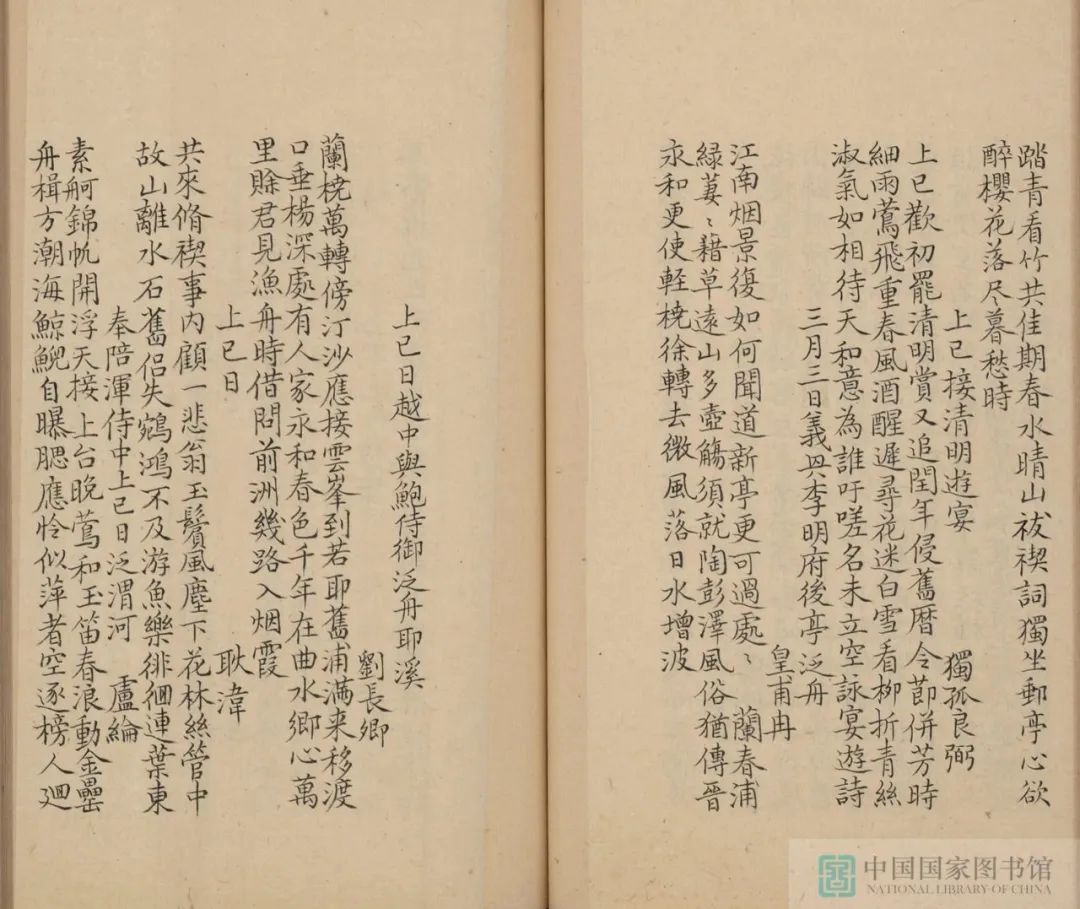 踏青看竹共佳期春水晴山祓禊詞獨坐郵亭心欲
醉櫻花落尽暮愁時
上巳接清明遊宴
獨孤良弼
上巳歡初罷清明賞又追閏年侵舊曆令節併芳時
細雨鶯飛重春風酒醒遲尋花迷白雪看柳折青絲
淑氣如相待天和意為誰吁嗟名未立空詠宴遊詩
三月三日義興李明府後亭泛舟
皇甫冉
江南烟景復如何聞道新亭更可過處〻蘭春浦
緑萋〻藉草遠山多壺觴須就陶彭澤風俗猶傳晉
永和更使軽橈徐轉去微風落日水增波
上巳日越中與鮑侍御泛舟耶溪
劉長卿
蘭橈萬轉傍汀沙應接雲峯到若耶舊浦満来移渡
口垂楊深處有人家永和春色千年在曲水鄉心萬
里賖君見漁舟時借問前洲幾路入烟霞
上巳日
耿湋
共來脩禊事内顧一悲翁玉鬢風塵下花林絲管中
故山離水石舊侣失鵷鴻不及游魚樂徘徊連葉東
奉陪渾侍中上巳日泛渭河
盧綸
素舸錦帆開浮天接上台晚鶯和玉笛春浪動金罍
舟楫方潮海鯨鯢自曝腮應怜似萍者空逐榜人廻
中国国家图书馆
NATIONAL LIBRARY OF CHINA